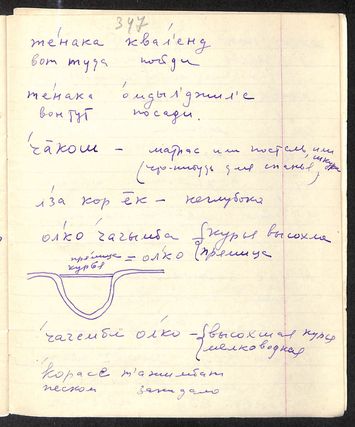 347
те́нака квал'енд
вот туда пойди
те́нака о́мдыл'джил'е
вон тут посади.
ча̄ком – матрас или постель, или шкура
(что-нибудь для спанья)
л'э́за кор е̄к – неглубоко
ол'ко ча́чымба {курья высохла
прелица = ол'ко {прелица
курья
ча́чембе̄ ол'ко – {высохшая курья
мелководная
ӄорасе̄ т'ажимбат
песком закидало